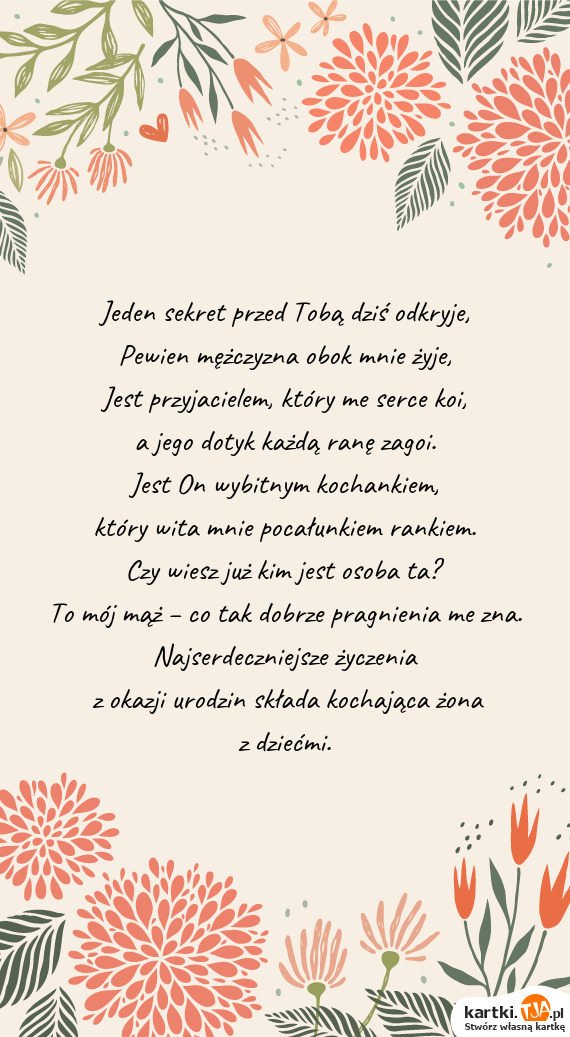 Jeden sekret przed Tobą dziś odkryje,
Pewien mężczyzna obok mnie żyje,
Jest przyjacielem, który me serce koi,
a jego dotyk każdą ranę zagoi.
Jest On wybitnym kochankiem,
który wita mnie pocałunkiem rankiem.
Czy wiesz już kim jest osoba ta?
To mój mąż – co tak dobrze pragnienia me zna.
Najserdeczniejsze życzenia
z okazji urodzin składa kochająca żona
z dziećmi.
kartki.TJA.pl
Stwórz własną kartkę